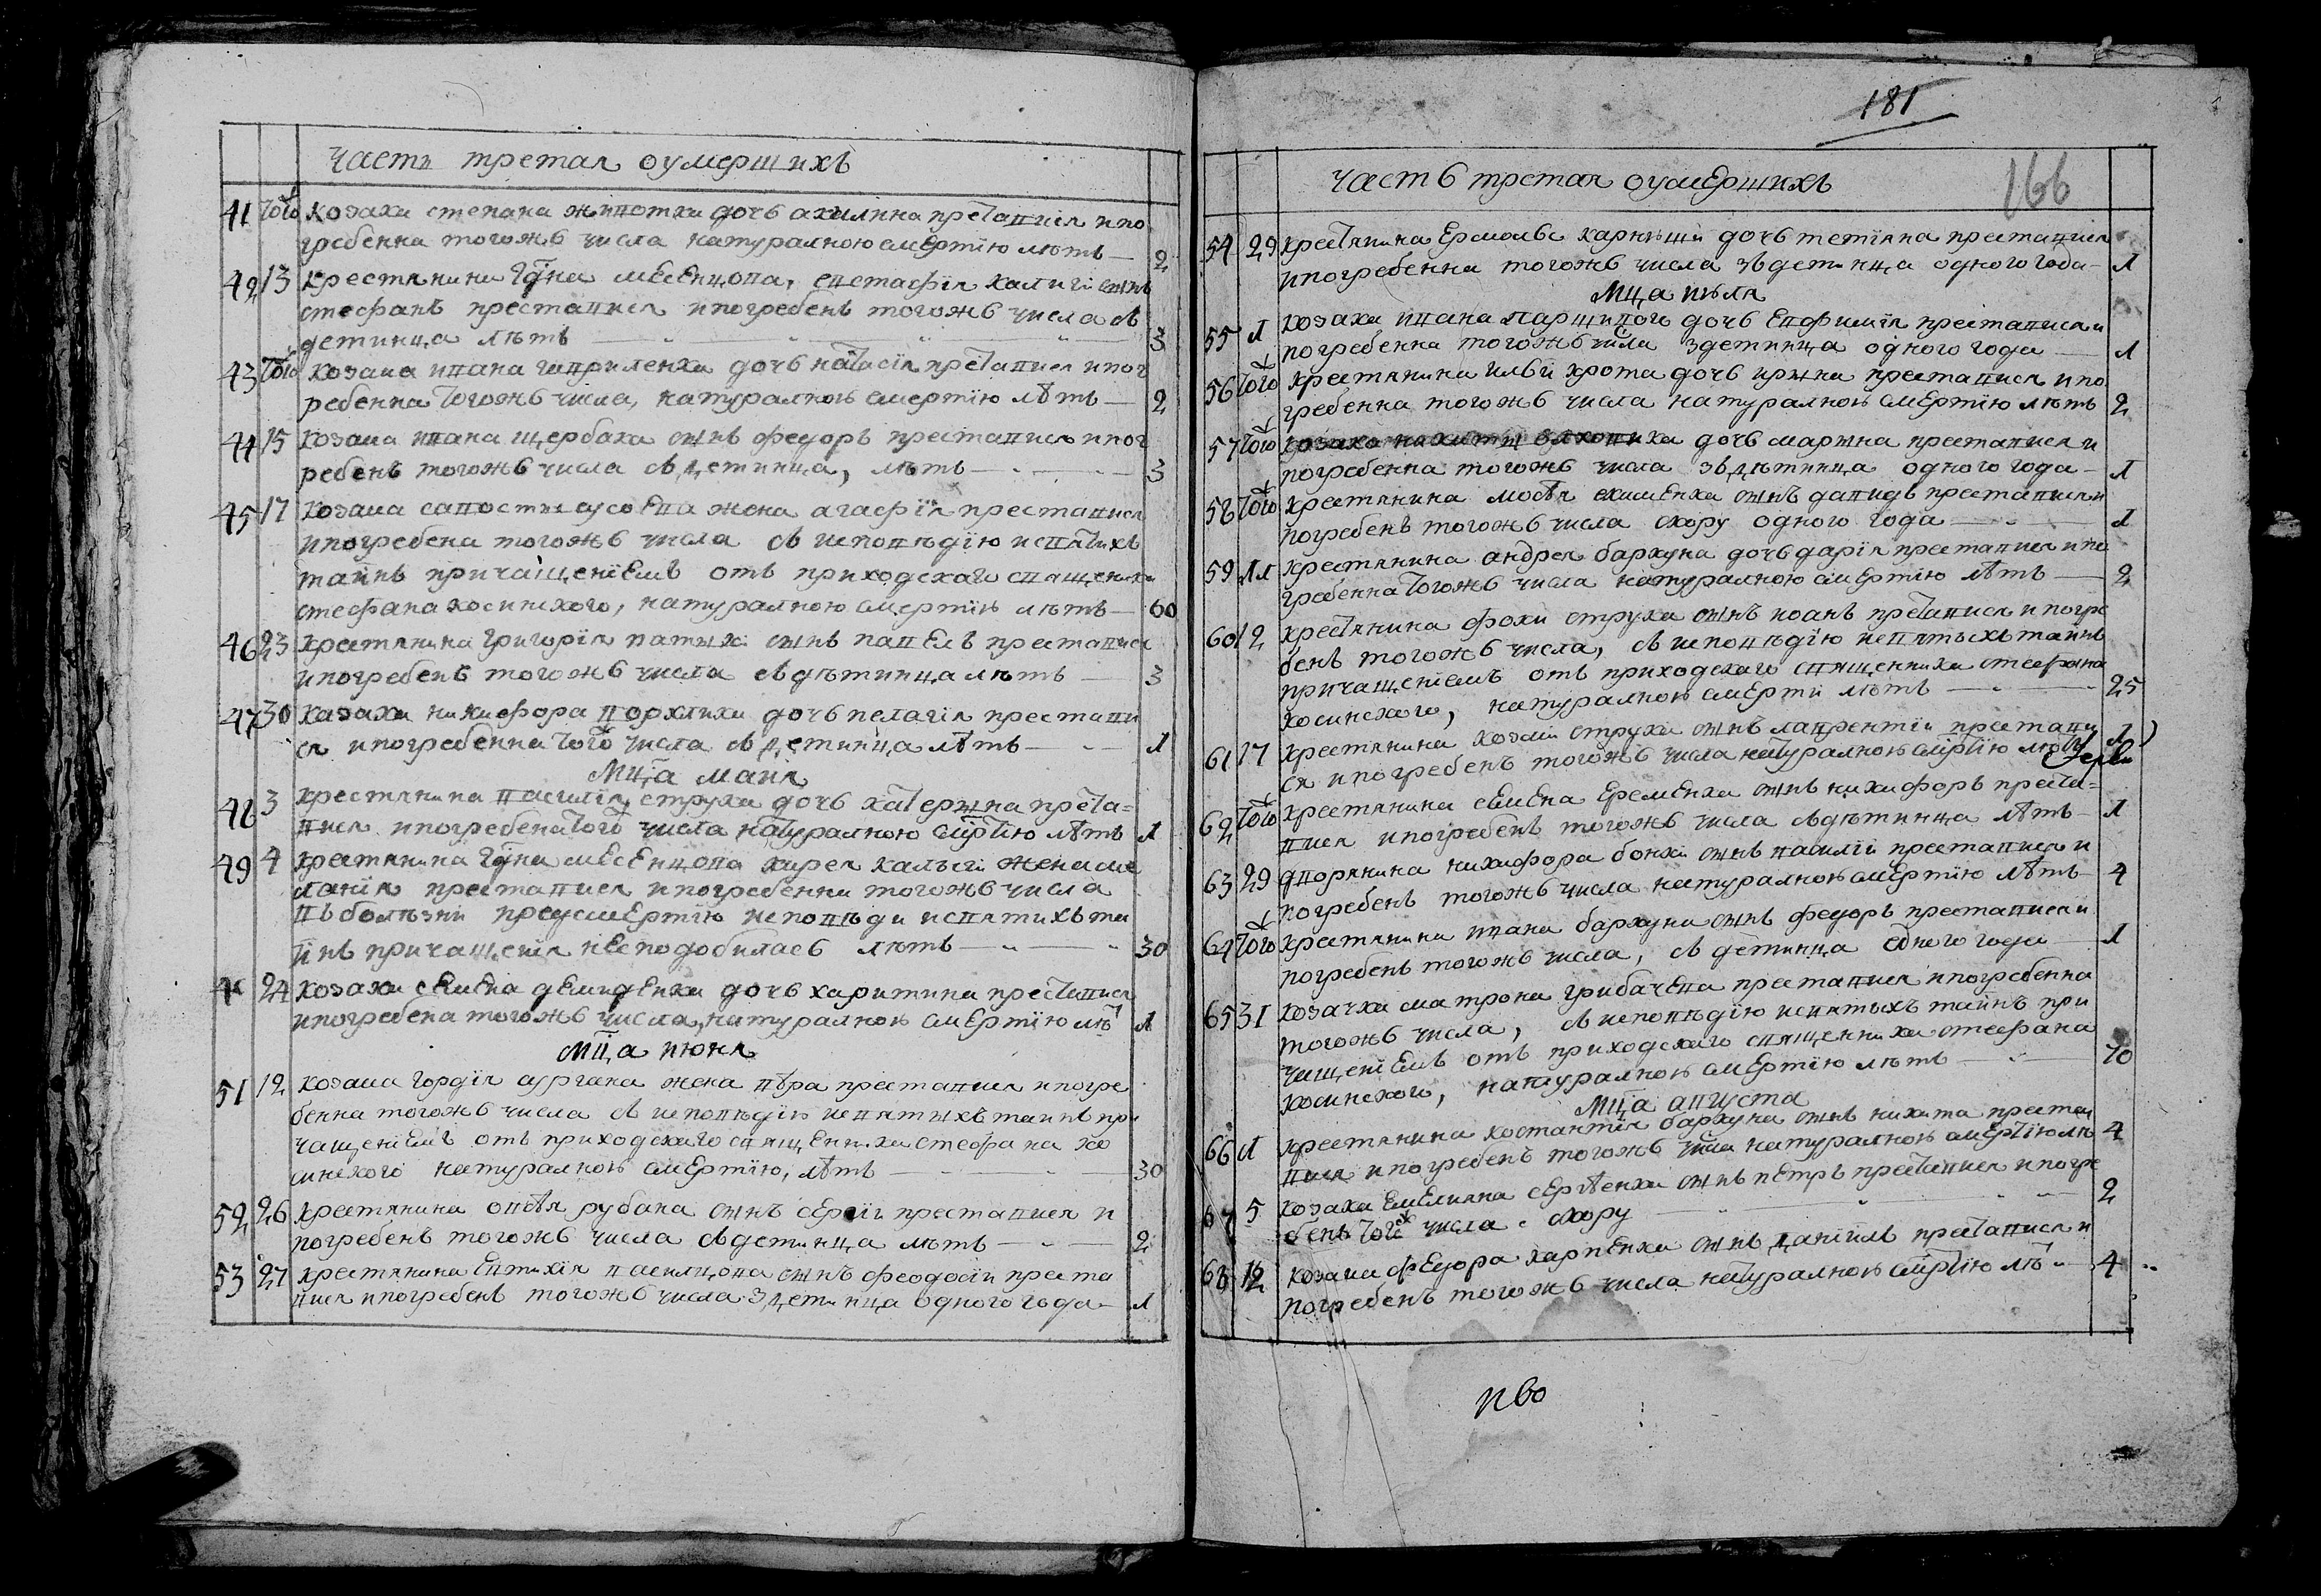 часть третая оумершихъ
41 того козака степана животки дочь акилина преставися и по
гребенна тогожь числа натуралною смертїю лѣтъ — 2
42 13 крестянина гдна месенцова, евстафїя калиги сынъ
стефанъ преставися и погребенъ тогожь числа съ
детинца лѣтъ — 3
43 того козака ивана гавриленка дочь настасїя преставися и пог
ребенна тогожь числа, натуралною смертїю лѣтъ — 2
44 15 козака ивана щербака сынъ федоръ преставися и пог
ребенъ тогожь числа съ детинца, лѣтъ — 3
45 17 козака жена агафїя преставися
и погребена тогожь числа съ исповѣдїю и святихъ
таинъ причащенїемъ отъ приходскаго священика
стефана косинского, натуралною смертїю лѣтъ — 60
46 23 крестянина григорїя сынъ павелъ преставися
и погребенъ тогожь числа съ дѣтинца лѣтъ — 3
47 30 казака никифора дочь пелагїя престави
ся и погребенна того числа съ детинца лѣтъ — 1
Мца маия
48 3 крестянина василїя струка дочь катерина преста=
вися и погребена того числа натуралною смертїю лѣтъ 1
49 4 крестянина гдна месенцова кирея калиги жена ме
ланїя преставися и погребенна тогожь числа
въ болѣзни предсмертїю исповѣди и святихъ та
инъ причащенїя несподобилась лѣтъ — 30
24 козака семена демиденка дочь харитина преставися
и погребена тогожь числа, натуралною смертїю лѣ 1
мца июня
51 12 козака гордїя кургана жена преставися и погре
бенна тогожь числа съ исповѣдїю и святыхъ таинъ при
чащенїемъ отъ приходскаго священика стефана ко
синского натуралною смертїю, лѣтъ — 30
52 26 крестянина рубана сынъ сергїй преставися и
погребенъ тогожь числа съ детинца лѣтъ — 2
53 27 крестянина евтихїя василцова сынъ феодосїй преста
вися и погребенъ тогожь числа з детинца одного года — 1
181
166
часть третая оумершихъ
54 29 крестянина дочь тетїяна преставися
и погребенна тогожь числа зъ детинца одного года — 1
Мца июля
55 1 козака ивана паршивого дочь евфимїя преставися и
погребенна тогожь числа з детинца одного года — 1
56 того крестянина илїи крота дочь ирина преставися и по
гребенна тогожь числа натуралною смертїю лѣтъ 2
57 того козака никити дочь марина преставися и
погребенна тогожь числа зъ дѣтинца одного года — 1
58 того крестянина мосѣя якименка сынъ давидъ преставися и
погребенъ тогожь числа скору одного года — 1
59 11 крестянина андрея баркуна дочь дарїя преставися и по
гребенна тогожь числа натуралною смертїю лѣтъ — 2
60 12 крестянина фоки струка сынъ иоанъ преставися и погре
бенъ тогожь числа, съ исповѣдїю и святыхъ таинъ
причащенїемъ отъ приходскаго священника стефана
косинского, натуралною смерти лѣтъ — 25
61 17 крестянина козми струка сынъ лаврентїй престави
ся и погребенъ тогожь числа натуралною смертїю лѣтъ 1
62 того крестянина семена еременка сынъ никифоръ преста=
вися и погребенъ тогожь числа съ дѣтинца лѣтъ — 1
63 29 дворянина никифора бонки сынъ василїй преставися и
погребенъ тогожь числа натуралною смертїю лѣтъ — 4
64 того крестянина ивана баркуна сынъ федоръ преставися и
погребенъ тогожь числа, съ детинца одного года — 1
65 31 козачка матрона грибачева преставися и погребенна
тогожь числа, съ исповѣдїю и святыхъ таинъ при
чащенїемъ отъ приходскаго священника стефана
косинского, натуралною смертїю лѣтъ — 70
Мца августа
66 1 крестянина костантїя баркуна сынъ никита преста
вися и погребенъ тогожь числа натуралною смертїю лѣ 4
67 5 козака емелияна сергѣенка сынъ петръ преставися и погре
бенъ того числа скору — 2
68 12 козака федора карпенка сынъ данїилъ преставися и
погребенъ тогожь числа натуралною смертїю лѣ — 4